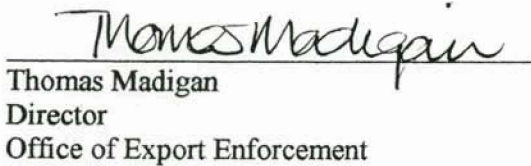 Thomas Madigan
Thomas Madigan
Director
Office of Export Enforcement